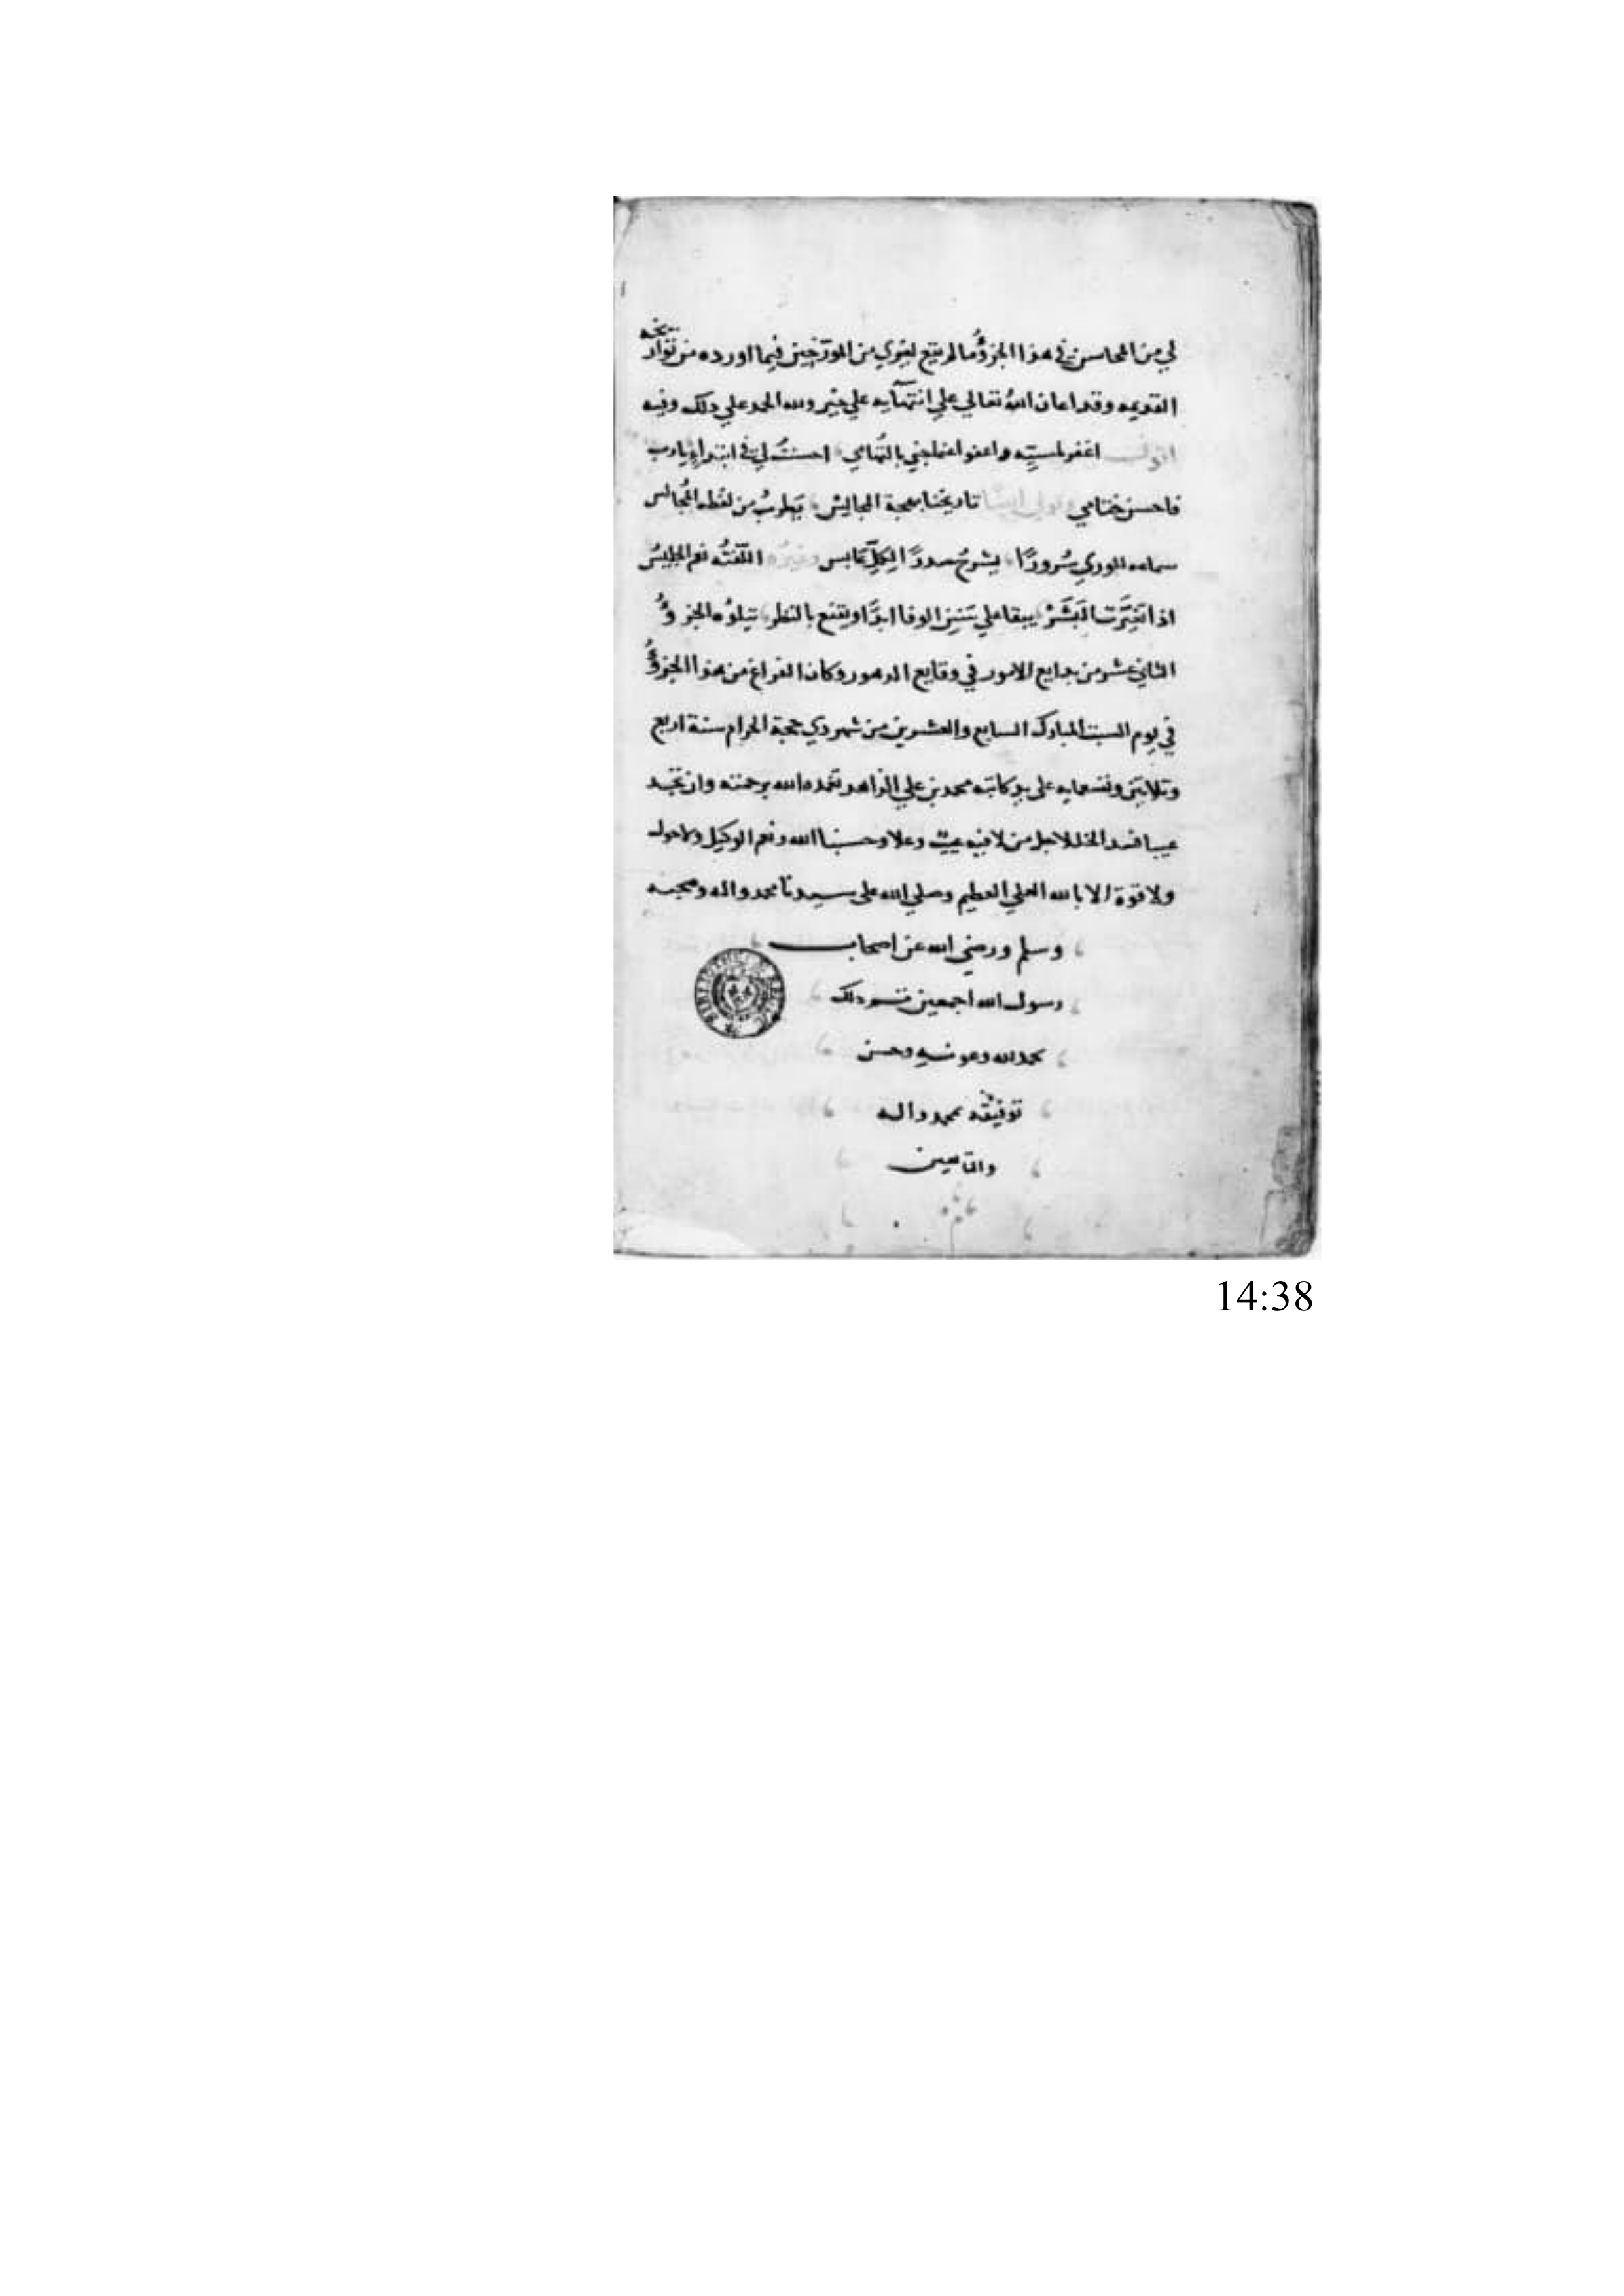 لي من المحاسن في هذا الجزؤ ما لم يقع لغيري من المورخين فيما اورده من تواريخه
القديمه وقد اعان الله تعالي علي انتهايه علي خير ولله الحمد علي دلك وفيه
اقول اغفر لمسيه واعفو احسنت لي في ابتداء يا رب
فاحسن ختامي وقولي ايضا تاريخنا بهجة المجالس يطرب من لفظه المجالس
سماعه للوري سرورًا يشرح صدرًا لكل عابس وغيره الفته نعم الجليس
اذا تغيرت البشر يبقا علي سنن الوفا ابدًا ويقنع بالنظر يتلوه الجزؤ
الثاني عشر من بدايع الامور في وقايع الدهور وكان الفراغ من هذا الجزؤ
في يوم السبت المبارك السابع والعشرين من شهر دي حجة الحرام سنة اربع
وتلاتين وتسعمايه على يد كاتبه محمد بن علي الزاهد تغمده الله برحمته وان تجد
عيبا فسد الخللا جل من لا فيه عيب وعلا وحسبنا الله ونعم الوكيل ولا حول
ولا قوة الا بالله العلي العظيم وصلي الله على سيدنا محمد واله وصحبه
وسلم ورضي الله عن اصحاب
رسول الله اجمعين تم دلك
بحمد الله وعونه وحسن
توفيقه بمحمد واله
والتابعين
14:38